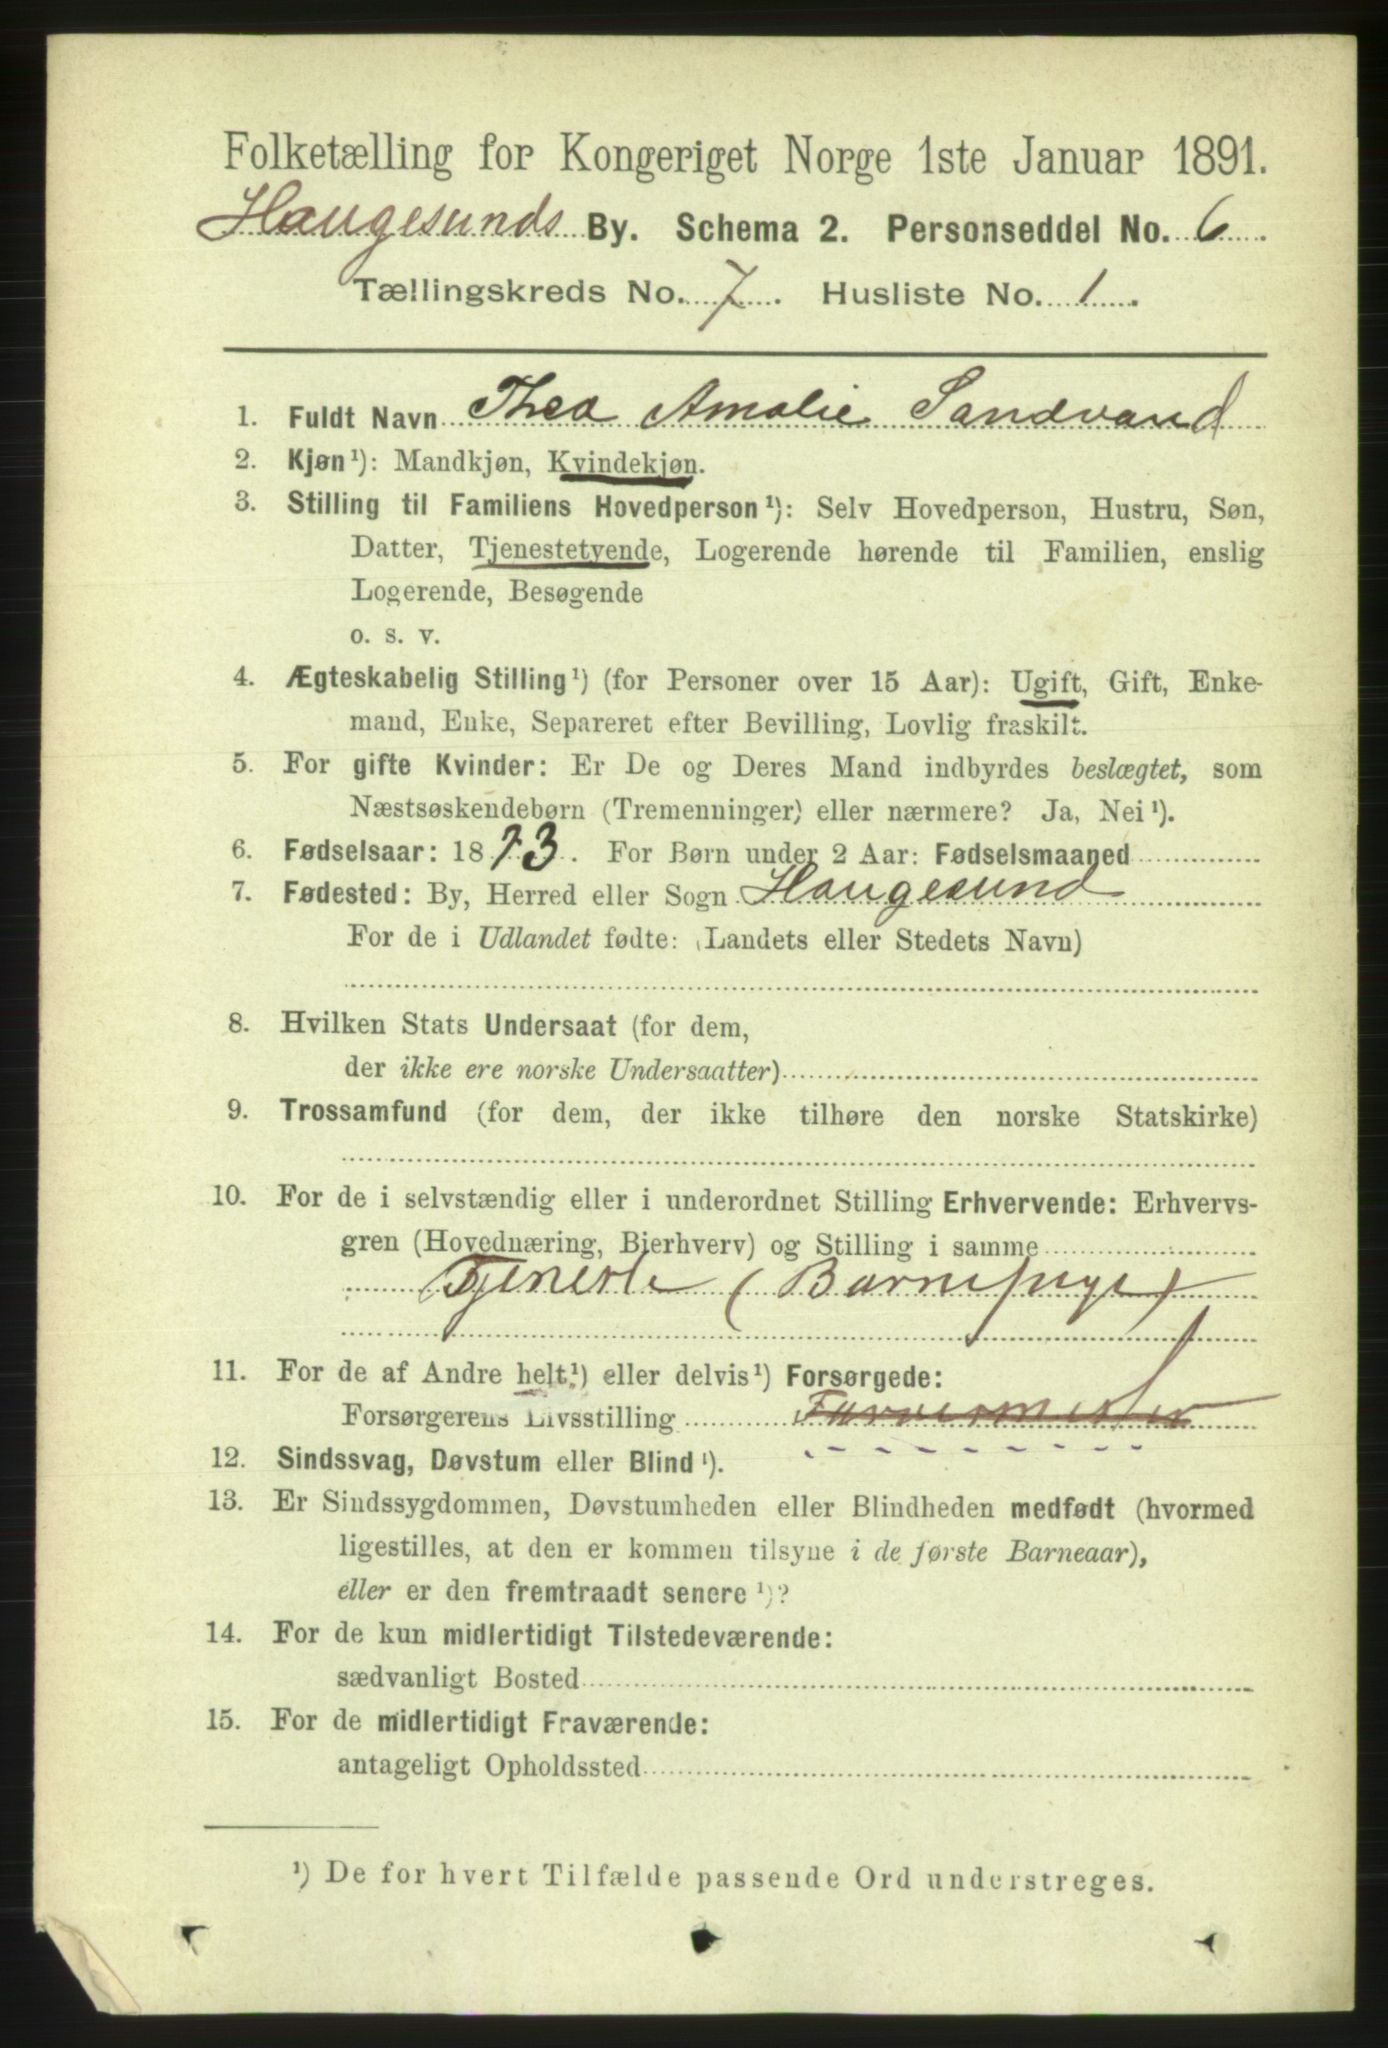 Folketælling for Kongeriget Norge 1ste Januar 1891.
Haugesunds By. Schema 2. Personseddel No. 6.
Tællingskreds No. 7. Husliste No. 1.
1. Fuldt Navn Thea Amalie Sandvand
2. Kjøn¹): Mandkjøn, Kvindekjøn.
3. Stilling til Familiens Hovedperson¹): Selv Hovedperson, Hustru, Søn,
Datter, Tjenestetyende, Logerende hørende til Familien, enslig
Logerende, Besøgende
o. s. v.
4. Ægteskabelig Stilling¹) (for Personer over 15 Aar): Ugift, Gift, Enke-
mand, Enke, Separeret efter Bevilling, Lovlig fraskilt.
5. For gifte Kvinder: Er De og Deres Mand indbyrdes beslægtet, som
Næstsøskendebørn (Tremenninger) eller nærmere? Ja, Nei¹).
6. Fødselsaar: 1873. For Børn under 2 Aar: Fødselsmaaned
7. Fødested: By, Herred eller Sogn Haugesund
For de i Udlandet fødte: (Landets eller Stedets Navn)
8. Hvilken Stats Undersaat (for dem,
der ikke ere norske Undersaatter)
9. Trossamfund (for dem, der ikke tilhøre den norske Statskirke)
10. For de i selvstændig eller i underordnet Stilling Erhvervende: Erhvervs-
gren (Hovednæring, Bierhverv) og Stilling i samme
Tjeneste (Barnepige)
11. For de af Andre helt¹) eller delvis¹) Forsørgede:
Forsørgerens Livsstilling
12. Sindssvag, Døvstum eller Blind¹).
13. Er Sindssygdommen, Døvstumheden eller Blindheden medfødt (hvormed
ligestilles, at den er kommen tilsyne i de første Barneaar),
eller er den fremtraadt senere¹)?
14. For de kun midlertidigt Tilstedeværende:
sædvanligt Bosted
15. For de midlertidigt Fraværende:
antageligt Opholdssted
¹) De for hvert Tilfælde passende Ord understreges.